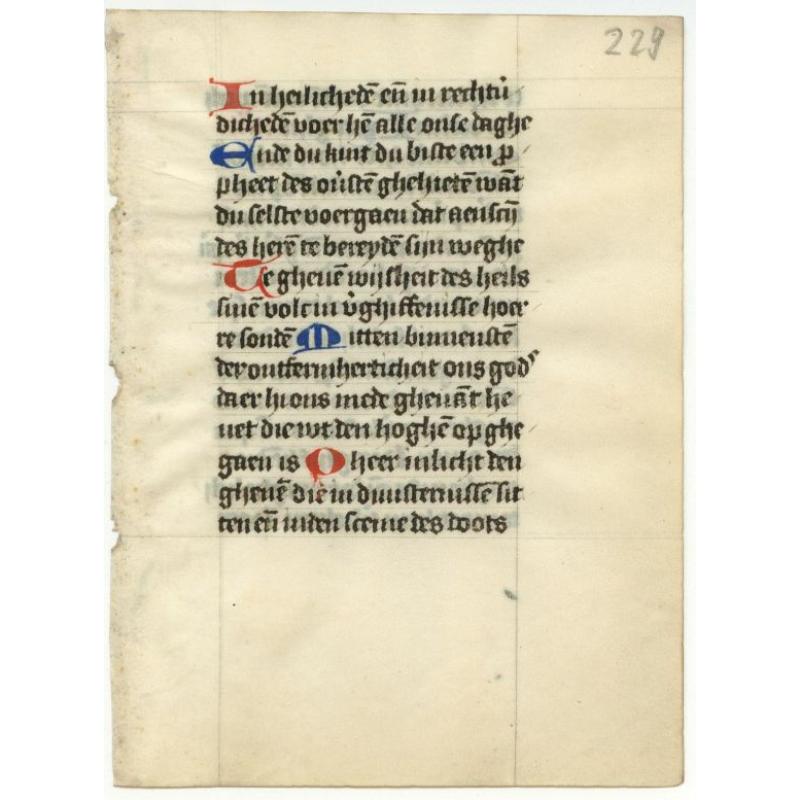 229
In heilichedē eñ in rechtũ
dichedē voer hē alle onse daghe
Ende du kint du biste een p
pheet des oũstē ghehietē wāt
du selste voergaen dat aenscĳ
des herē te bereydē sijn weghe
Te gheuē wijsheit des heils
sinē volc in v̄ghiffenisse hoer
re sondē Mitten binnenstē
der ontfermherticheit ons gods
daer hi ons mede gheuāt he
uet die wt den hoghē op ghe
gaen is O heer inlicht den
ghenē die in duusternissē sit
ten eñ inden sceme des doots